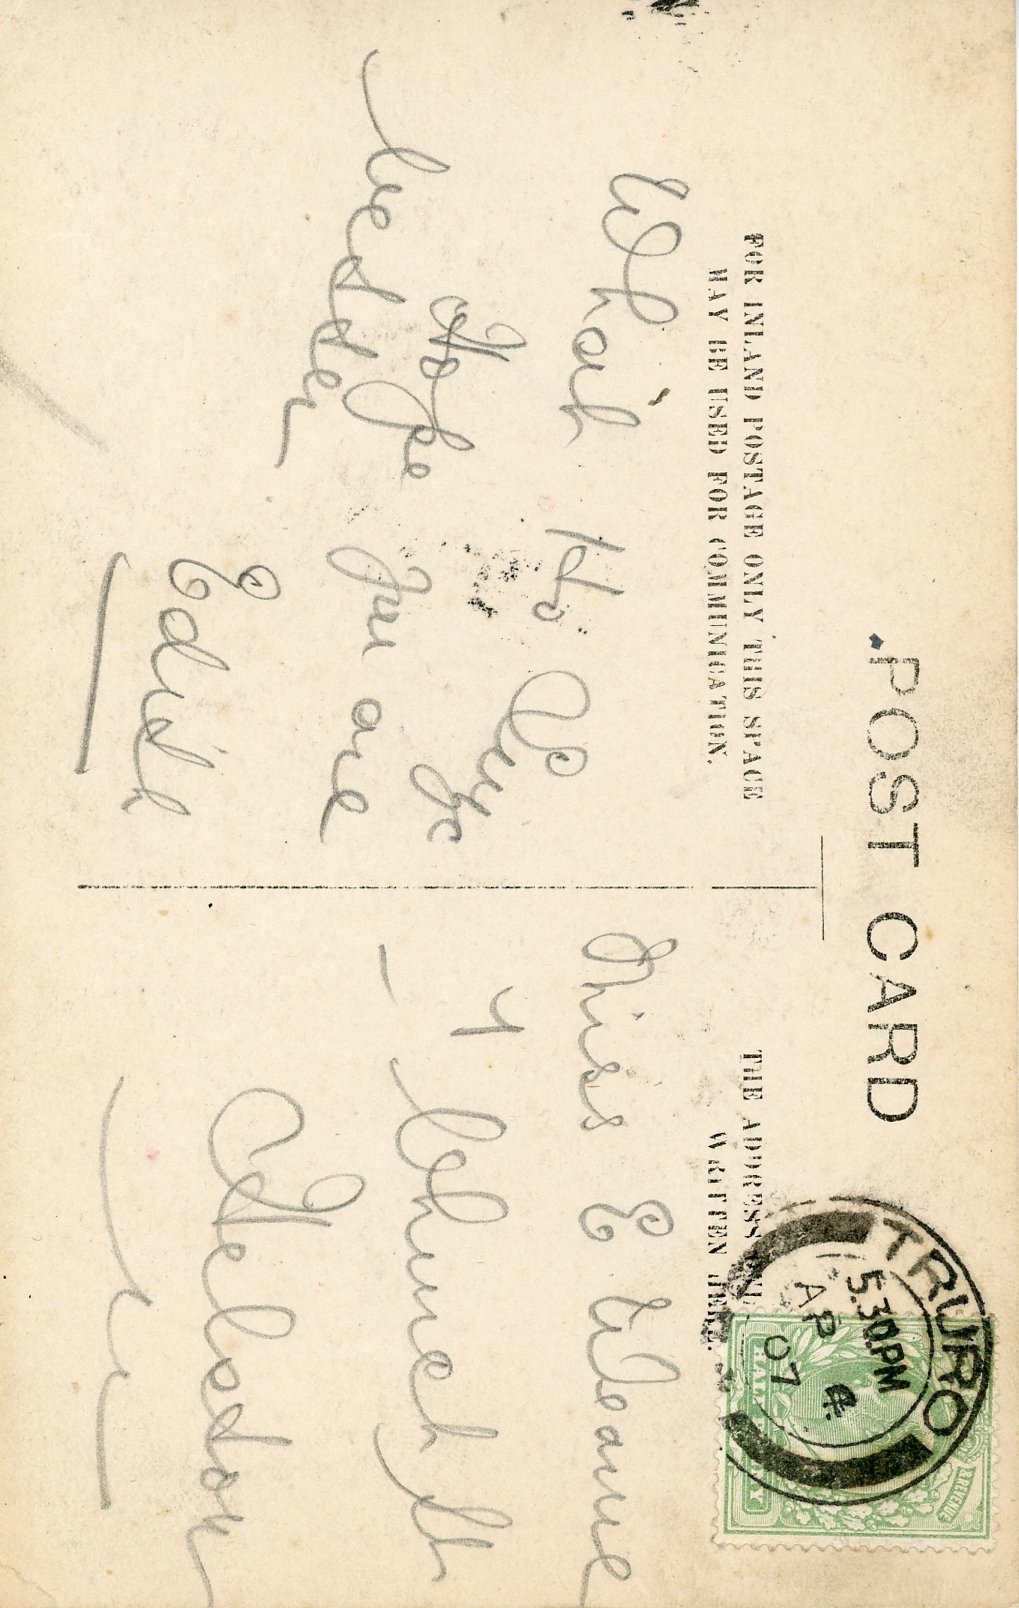 POST CARD
FOR INLAND POSTAGE ONLY THIS SPACE
MAY BE USED FOR COMMUNICATION.
THE ADDRESS
WRITTEN
TRURO
5.30PM
AP 4
07
REVENUE
What Ho
Hope you are
better
Edith
Miss E
4 Church St
Helston